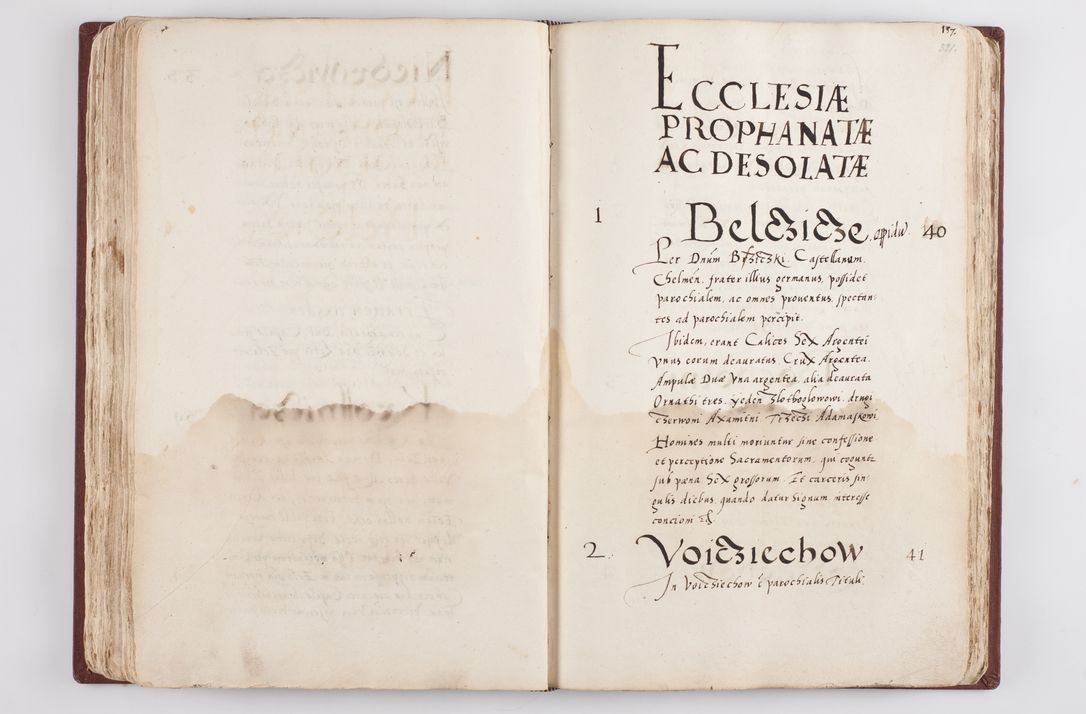 187.
331.
ECCLESIÆ
PROPHANATÆ
AC DESOLATÆ
1 Belczicze oppidū. 40
Per Dnūm Castellanum.
Chelmēn. frater illius germanus, possidet
parochialem, ac omnes prouentus, spectan-
tes ad parochialem percipit.
Ibidem, erant Calices Sex Argentei
vnus eorum deauratus, Crux Argentea.
Ampulæ Duæ vna argentea. alia deaurata
Ornathi tres. yeden Zlothogłowowi. drugi
Czerwoni Axamitni Trzeczi Adamaskowi
Homines multi moriuntur sine confessione
et perceptione Sacramentorum, qui coguntr
sub pæna Sex grossorum. Et carceris sin-
gulis diebus, quando datur Signum, interesse
concioni
2. Voicziechow 41
In Voicziechow ē parochialis Tituli.